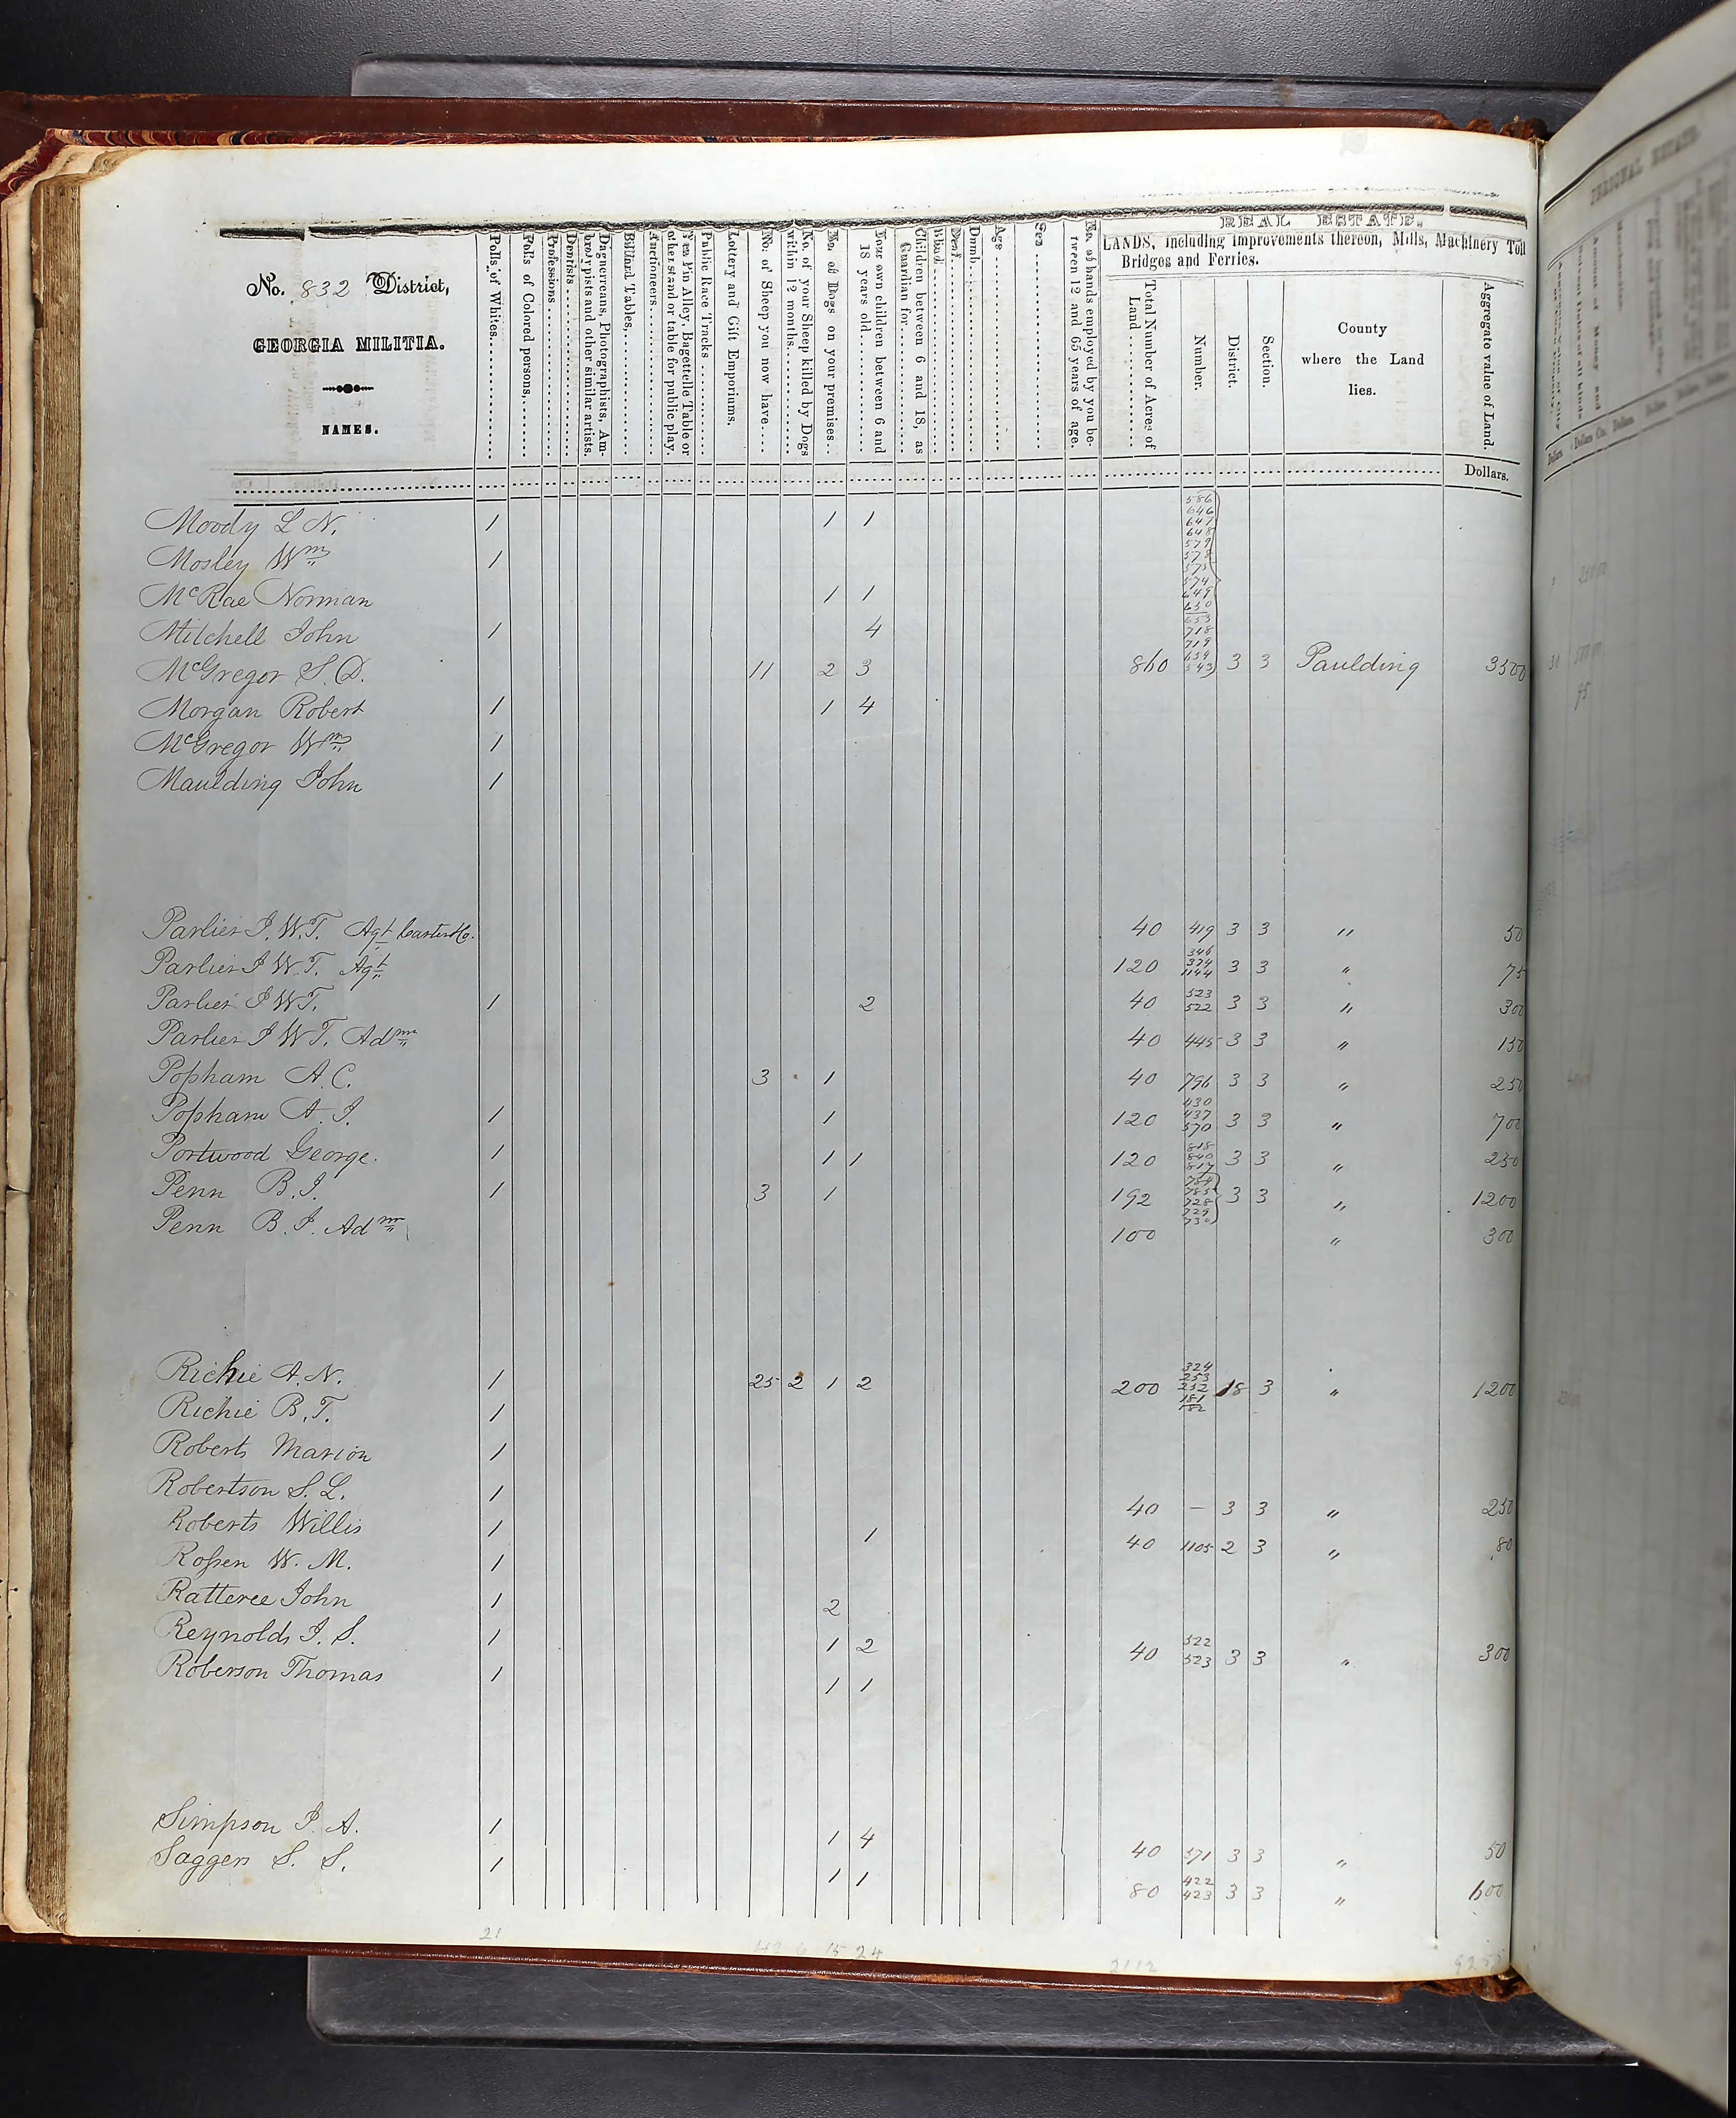 REAL ESTATE.
LANDS, including improvements thereon, Mills, Machinery Toll
Bridges and Ferries.
No. 832 District,
GEORGIA MILITIA.
NAMES.
Polls of Whites.
Polls of Colored persons,
Professions
Dentists
Daguerreans, Photographists, Am-
brotypists and other similar artists.
Billiard Tables,
Auctioneers
Ten Pin Alley, Bagettelle Table or
other stand or table for public play.
Public Race Tracks
Lottery and Gift Emporiums.
No. of Sheep you now have
No. of your Sheep killed by Dogs
within 12 months.
No. of Dogs on your premises.
Your own children between 6 and
18 years old
Children between 6 and 18, as
Guardian for
Blind
Deaf
Dumb
Age
Sex
No. of hands employed by you be-
tween 12 and 65 years of age.
Total Number of Acres of
Land
Number.
District.
Section.
County
where the Land
lies.
Aggregate value of Land.
Dollars.
Moody L N. 1 1 1
Mosley Wm 1
McRae Norman 1 1
Mitchell John 1 4
586
646
647
648
579
578
575
574
649
650
653
718
719
659
543
McGregor S. D. 11 2 3 860 3 3 Paulding 3500
Morgan Robert 1 1 4
McGregor Wm 1
Maulding John 1
Parlier J. W. T. Agt 40 419 3 3 " 50
Parlier J W. T. Agt 120 346 374 1144 3 3 " 75
Parlier J W T. 1 2 40 523 522 3 3 " 300
Parlier J W T. Admr 40 445 3 3 " 150
Popham A. C. 3 1 40 796 3 3 " 250
Popham A. J. 1 1 120 430 437 570 3 3 " 700
Portwood George. 1 1 1 120 818 840 817 3 3 " 250
Penn B. J. 1 3 1 192 784 785 728 729 730 3 3 " 1200
Penn B. J. Admr 100 " 300
Richie A. N. 1 25 2 1 2 200 324 253 252 181 182 18 3 " 1200
Richie B. T. 1
Roberts Marion 1
Robertson S. L. 1 40 — 3 3 " 250
Roberts Willis 1 1 40 1105 2 3 " 80
Rossen W. M. 1
Ratteree John 1 2
Reynolds J. S. 1 1 2 40 522 523 3 3 " 300
Roberson Thomas 1 1 1
Simpson J. A. 1 1 4 40 571 3 3 " 50
Saggers S. S. 1 1 1 80 422 423 3 3 " 600
21 42 15 24 2112